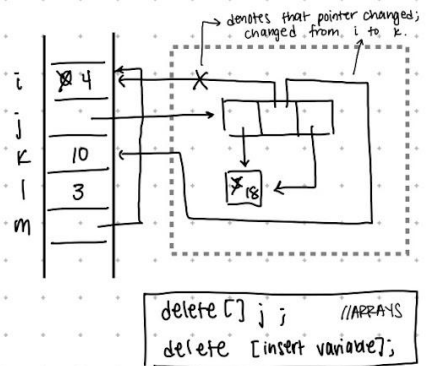 denotes that pointer changed;
changed from i to k.
i
4
j
K
10
l
3
m
18
delete [] j ; //ARRAYS
delete [insert variable];